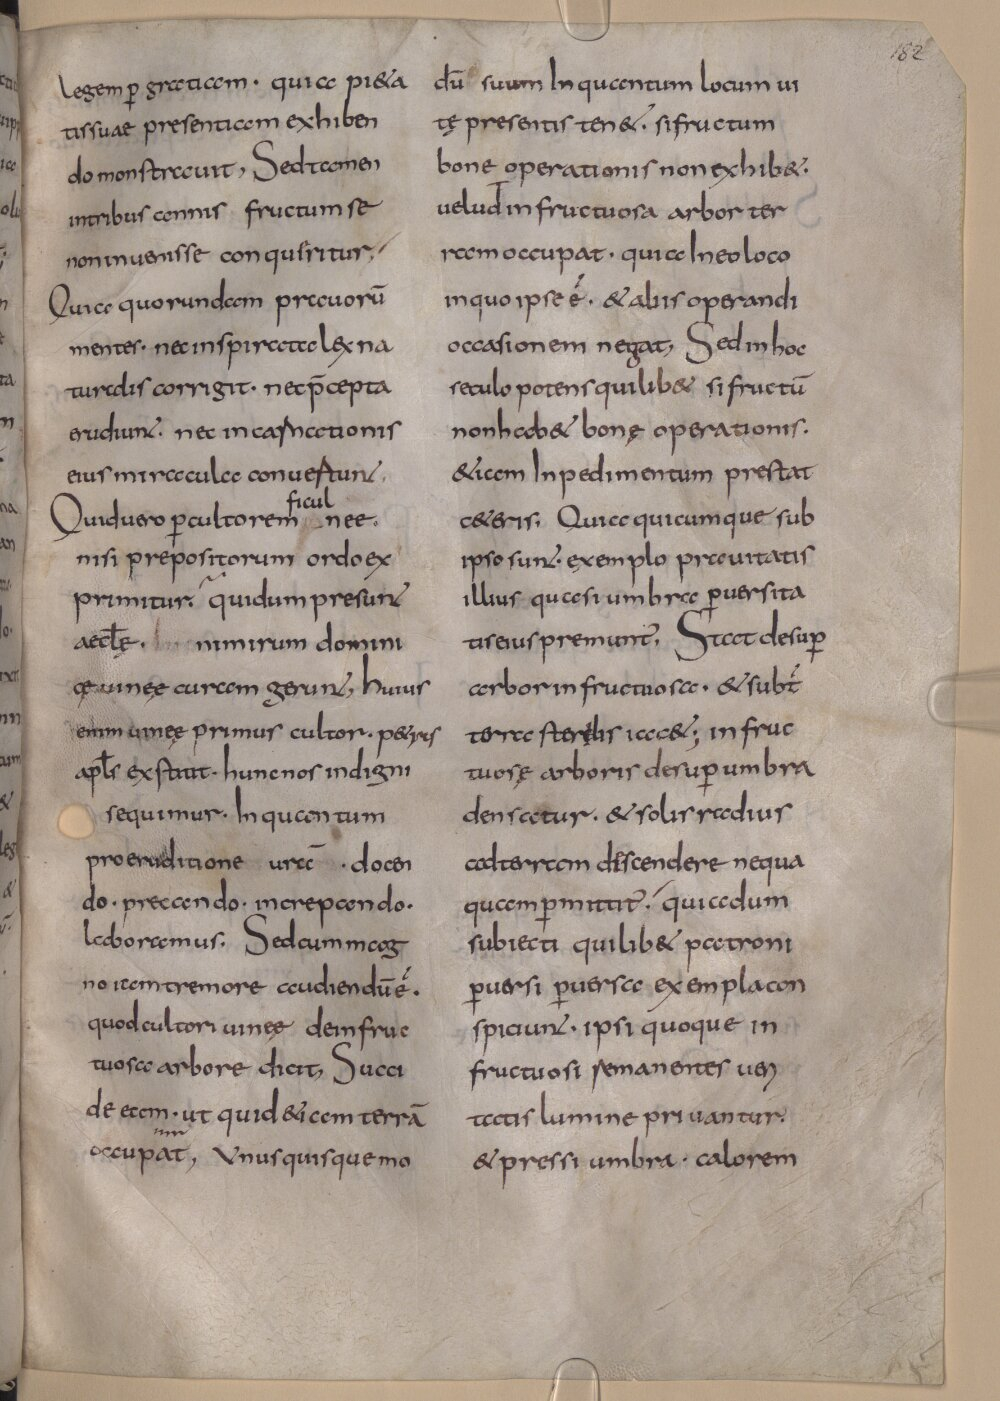 182
legem p̄ gratiam · quia pi&a
tissuae presentiam exhiben
do monstrauit, Sed tamen
intribus annis fructum se
non inuenisse conqueritur,
Quia quorundam prauorū
mentes · nec inspirata lex na
turalis corrigit · nec p̄cepta
erudiunt · nec incarnationis
eius miracula conuertunt,
Quid uero p̄cultorem ficul nee ·
nisi prepositorum ordo ex
primitur. qui dum presunt
aeclę · nimirum domini
cę uineę curam gerunt, huius
enim uineę primus cultor · p&rus
apls exstitit · hunc nos indigni
sequimur · In quantum
pro eruditione urā · docen
do · precando · increpando ·
laboramus. Sed cum mag
no iam tremore audiendū ē ·
quod cultori uineę de infruc
tuosa arbore dicit, Succi
de eam · ut quid &iam terrā
occupat, Vnusquisque mo
dū suum In quantum locum ui
tę presentis ten& · si fructum
bonę operationis non exhib& ·
uelud infructuosa arbor ter
ram occupat · quia In eo loco
in quo ipse ē · & aliis operandi
occasionem negat, Sed in hoc
seculo potens quilib& si fructū
non hab& bonę operationis ·
&iam Inpedimentum prestat
c&eris. Quia quicumque sub
ipso sunt · exemplo prauitatis
illius quasi umbra p̄uersita
tis eius premunt, Stat desup̄
arbor infructuosa · & subt̄
terra sterelis iac& ; infruc
tuosę arboris desup̄ umbra
densatur · & solis radius
ad terram discendere nequa
quam p̄mittit. quia dum
subiecti quilib& patroni
p̄uersi p̄uersa exempla con
spiciunt · ipsi quoque in
fructuosi remanentes ueri
tatis lumine priuantur.
& pressi umbra · calorem